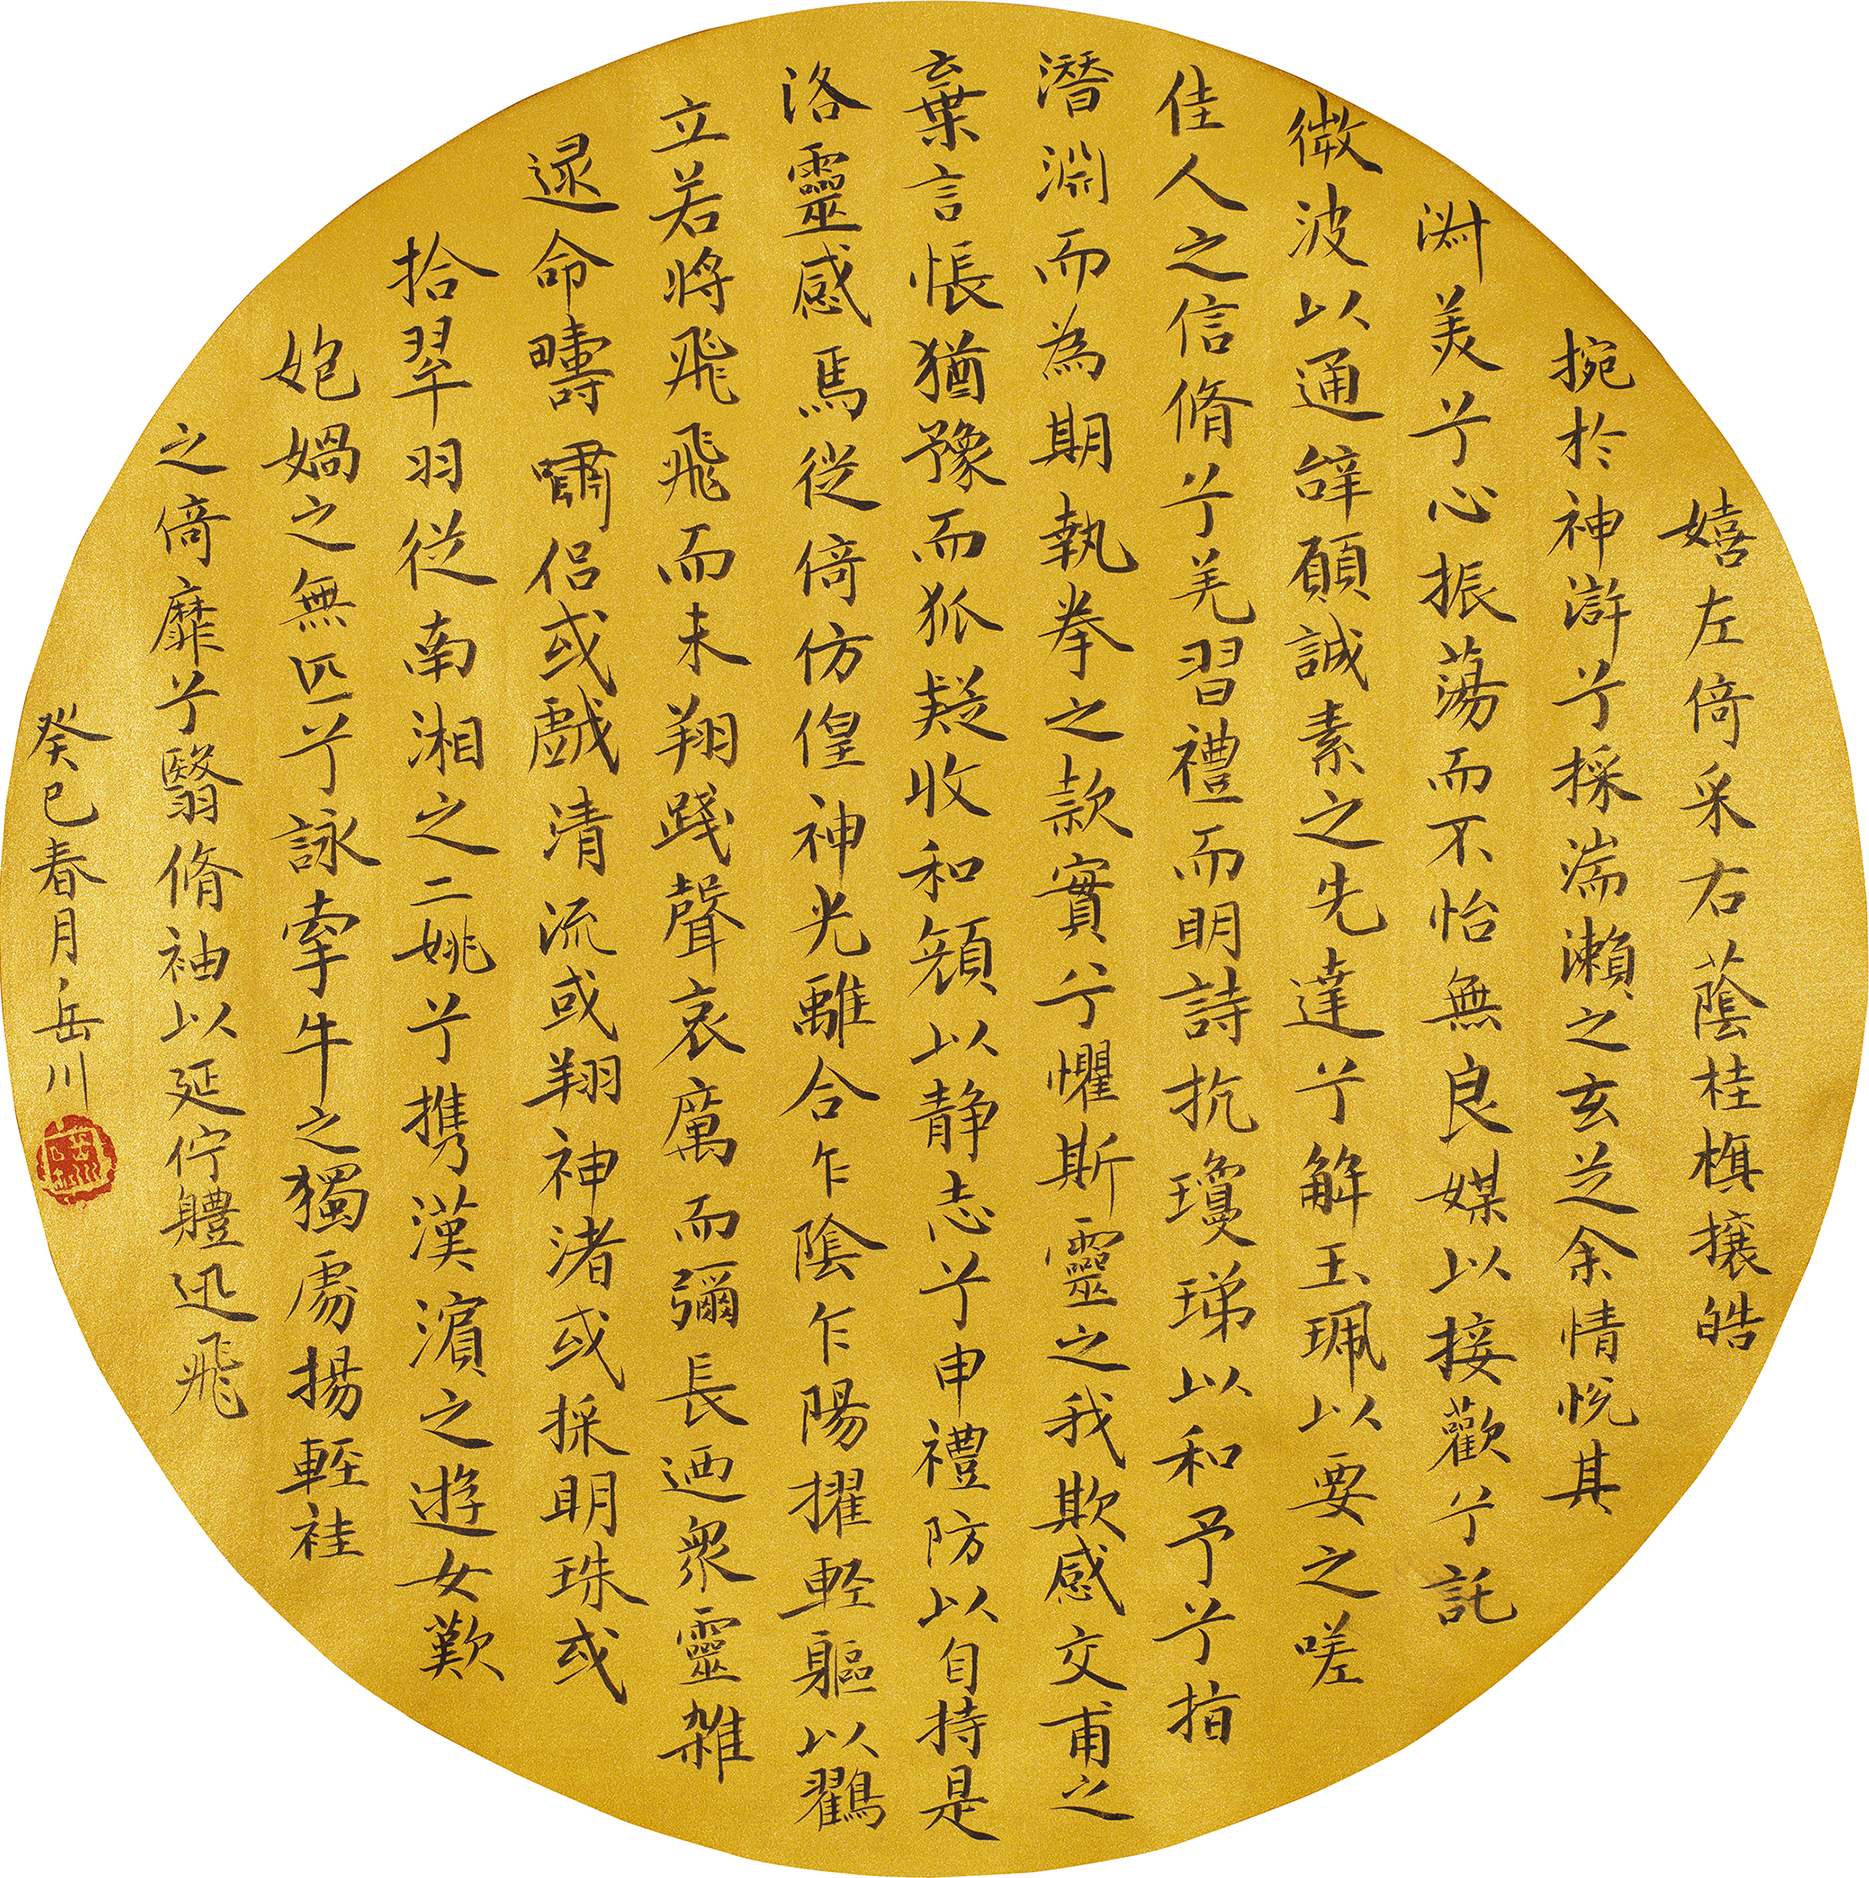 嬉左倚采右蔭桂旗攘皓
捥於神滸兮採湍瀨之玄芝余情悅其
淋美兮心振蕩而不怡無良媒以接歡兮託
微波以通辭願誠素之先達兮解玉珮以要之嗟
佳人之信脩兮羌習禮而明詩抗瓊珶以和予兮指
潛淵而為期執拳之款實兮懼斯靈之我欺感交甫之
棄言悵猶豫而狐疑收和顏以静志兮申禮防以自持是
洛靈感焉徙倚仿偟神光離合乍陰乍陽擢軽軀以鸐
立若將飛飛而未翔踐聲哀厲而彌長迺衆靈雜
遝命疇嘯侣或戲清流或翔神渚或採明珠或
拾翠羽從南湘之二姚兮携漢濵之遊女歎
媳媧之無匹兮詠牽牛之獨處揚輕袿
之倚靡兮翳脩袖以延佇軆迅飛
癸巳春月岳川